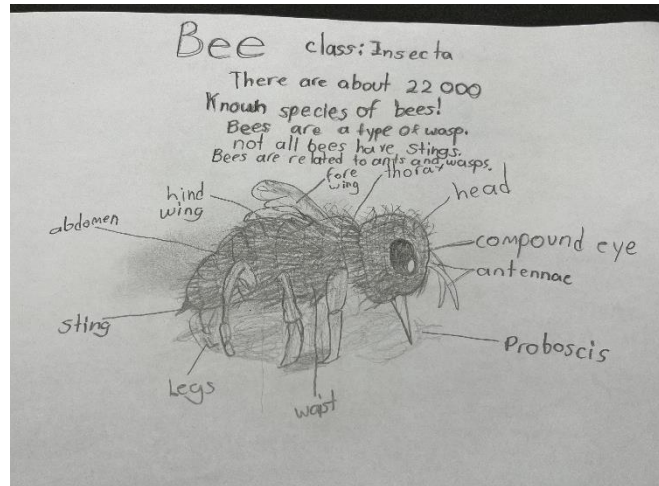 Bee class: Insecta
There are about 22 000
Known species of bees!
Bees are a type of wasp.
not all bees have stings.
Bees are related to ants and wasps.
fore wing
thorax
hind wing
head
abdomen
compound eye
antennae
sting
Proboscis
Legs
waist